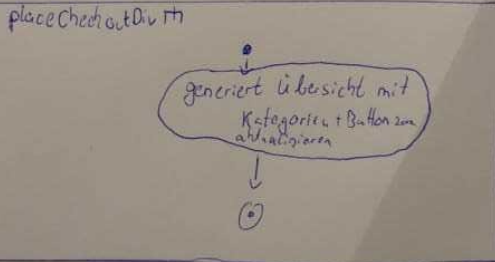 placeCheckoutDiv
generiert Übersicht mit
Kategorien + Button zum
aktualisieren